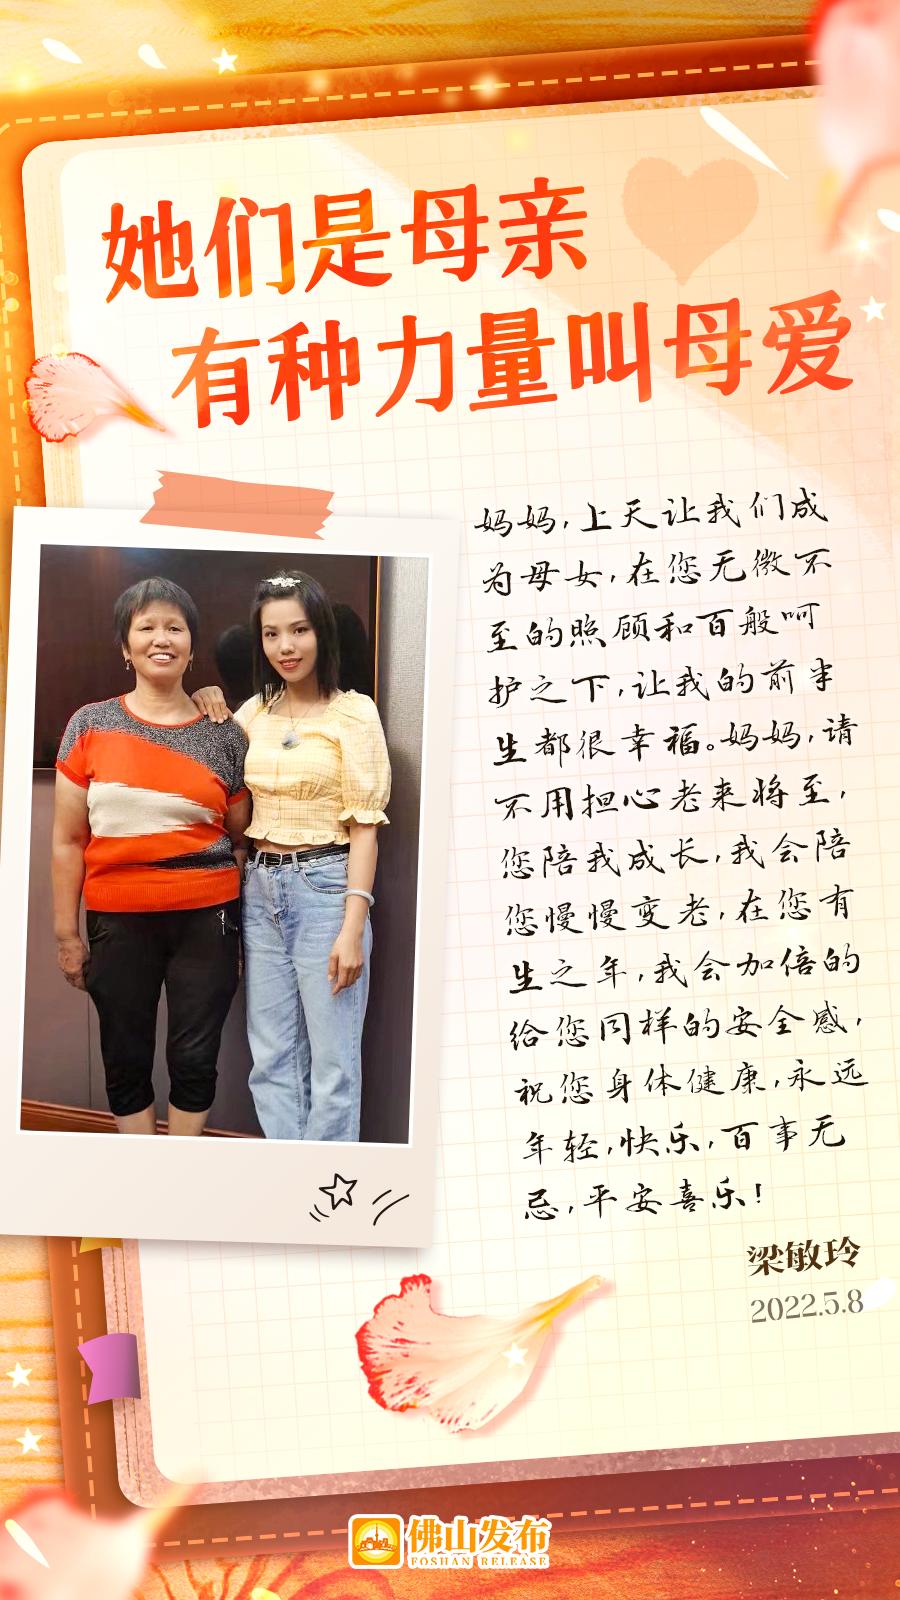 她们是母亲
有种力量叫母爱
妈妈,上天让我们成
为母女,在您无微不
至的照顾和百般呵
护之下,让我的前半
生都很幸福。妈妈,请
不用担心老来将至,
您陪我成长,我会陪
您慢慢变老,在您有
生之年,我会加倍的
给您同样的安全感,
祝您身体健康,永远
年轻,快乐,百事无
忌,平安喜乐!
梁敏玲
2022.5.8
佛山发布
FOSHAN RELEASE